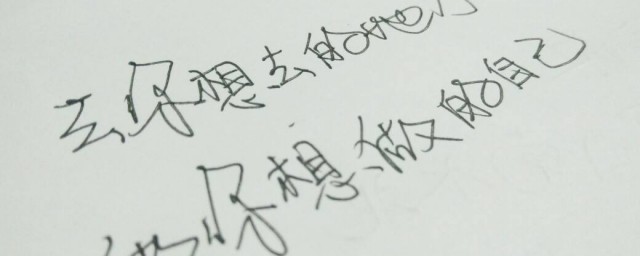 去你想去的地方
你想做的自己